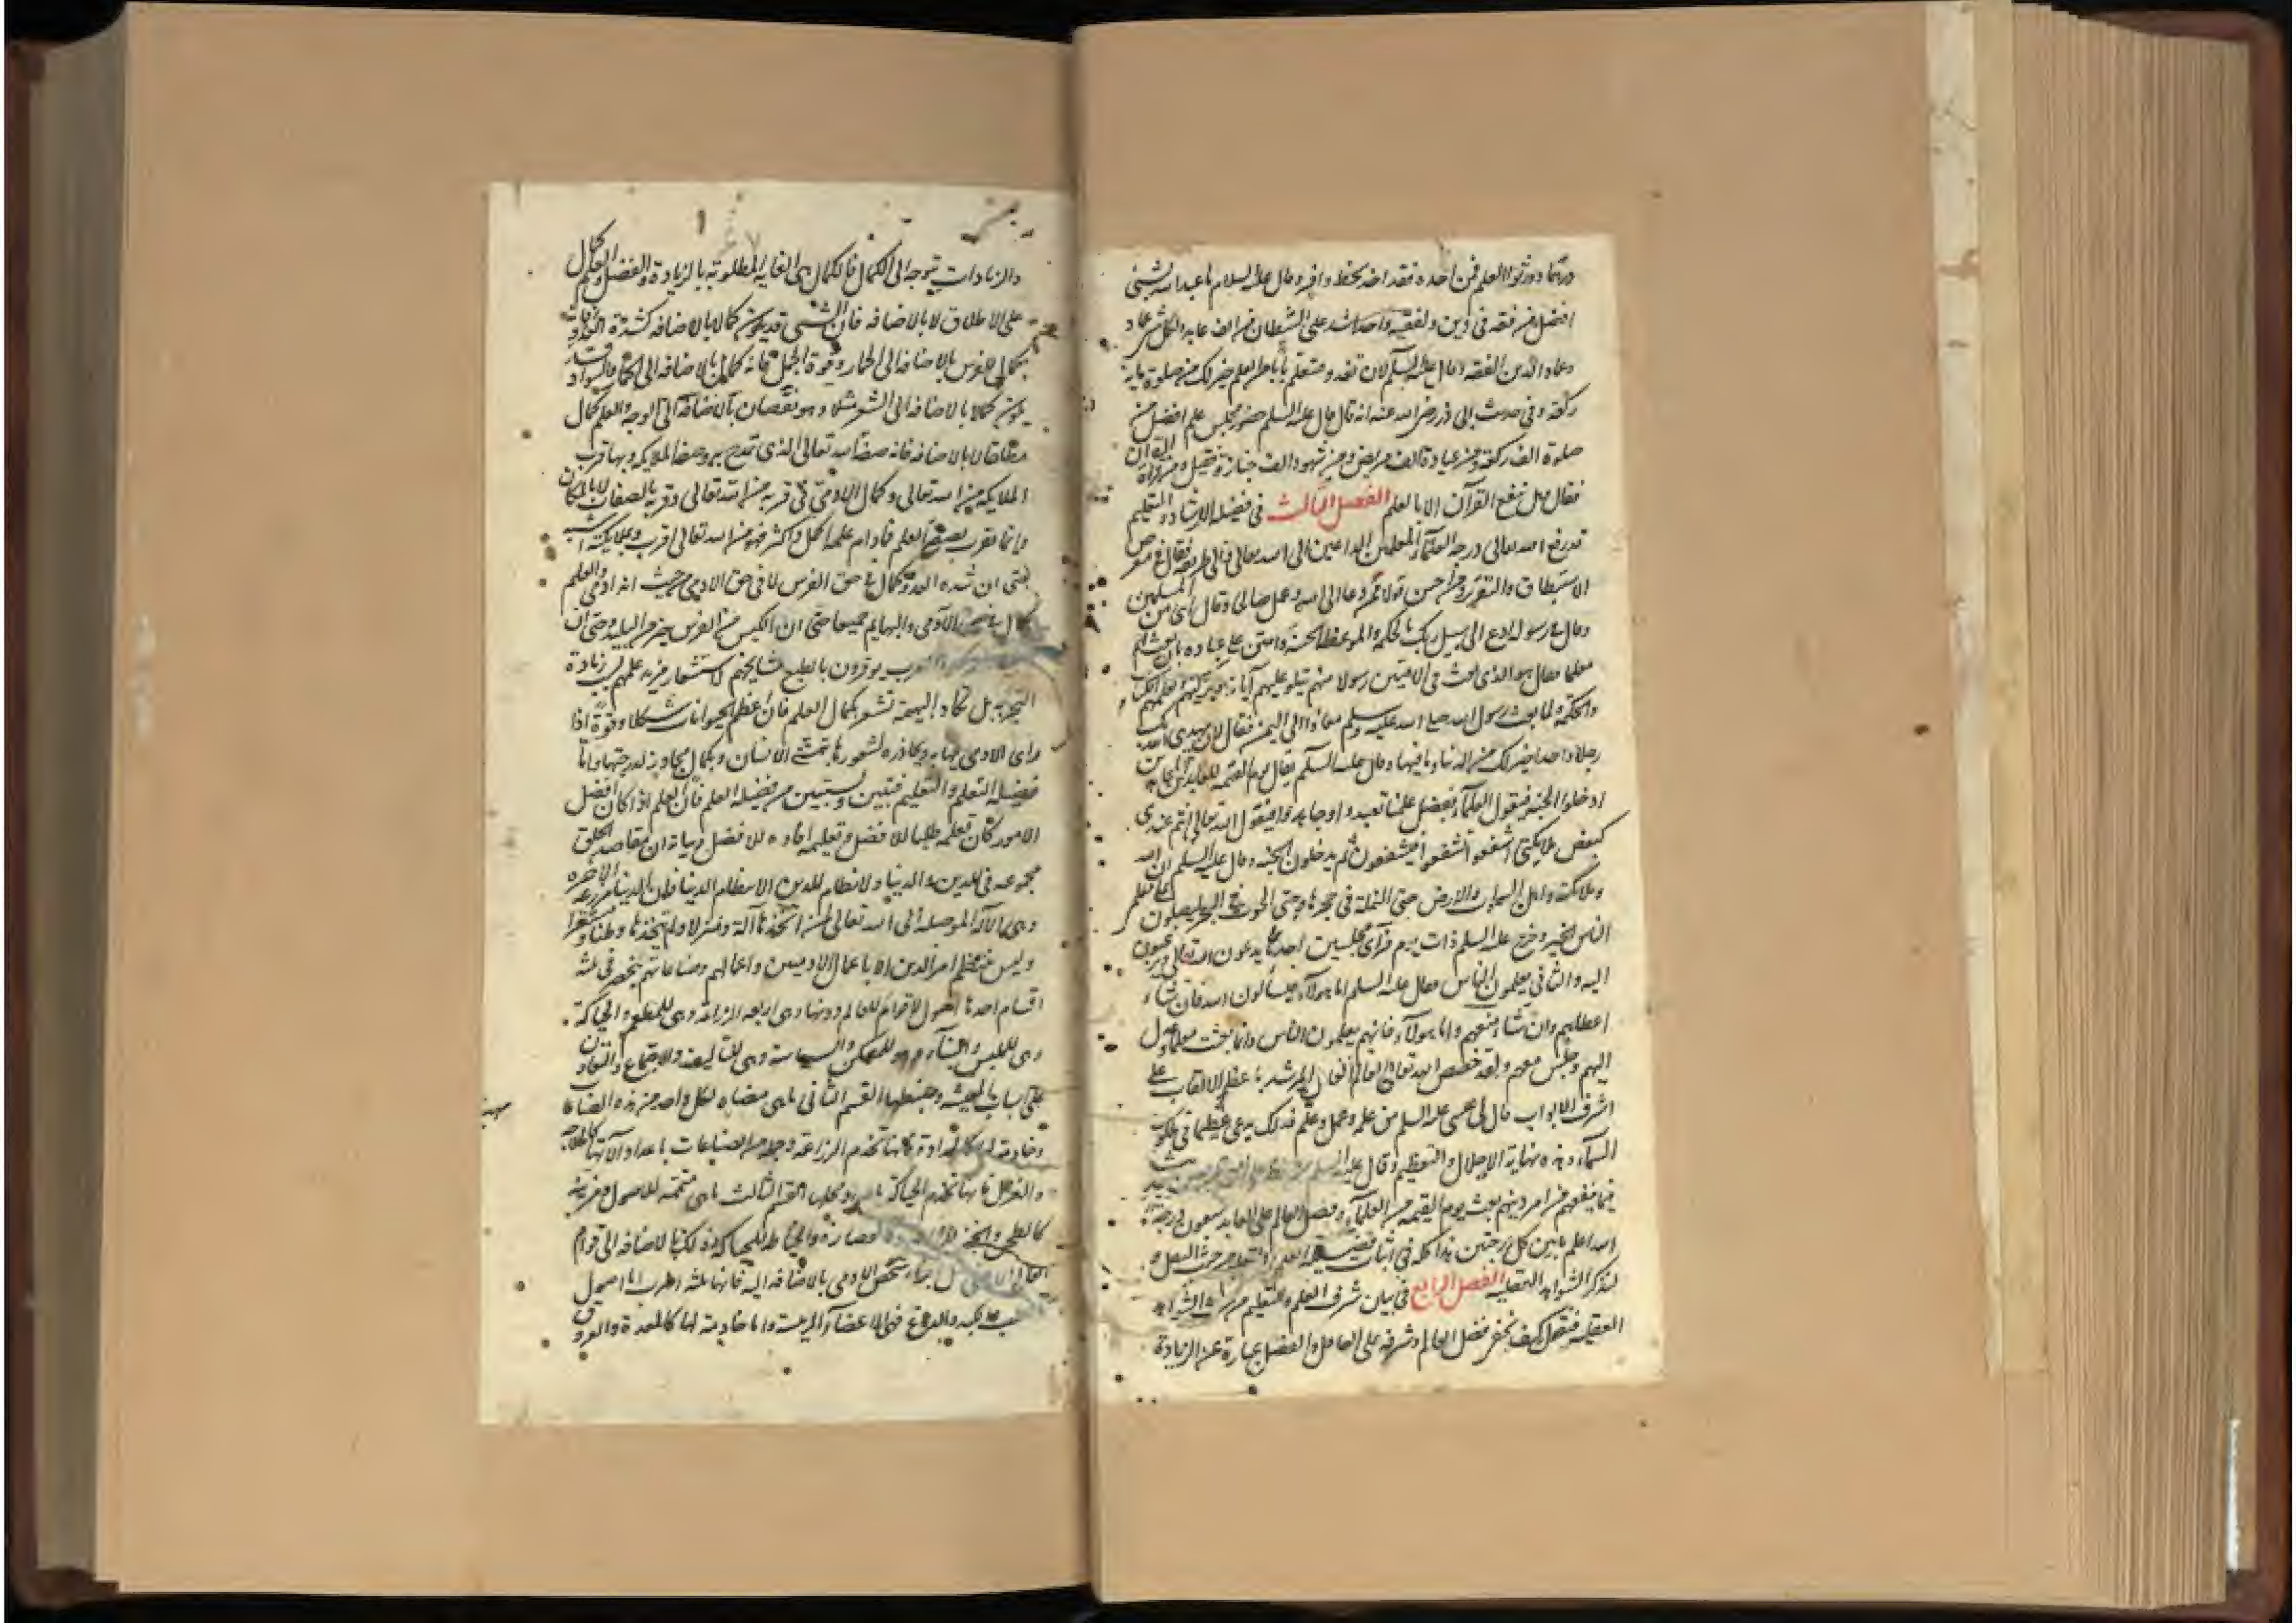 درهما وورثوا العلم فمن اخذه فقد اخذ بحظ وافر وقال عليه السلام ما عبد الله بشئ
افضل من فقه في دين ولفقيه واحد اشد على الشيطان من الف عابد ولكل شئ عماد
وعماد الدين الفقه وقال عليه السلم لان تغدو فتتعلم بابا من العلم خير لك من صلوة مايه
ركعة وفي حديث ابى ذر رضى الله عنه انه قال قال عليه السلم حضور مجلس علم افضل من
صلوة الف ركعة ومن عيادة الف مريض ومن شهود الف جنازة فقيل ومن قراة القرآن
فقال هل ينفع القرآن الا بالعلم الفصل الثالث في فضيلة الارشاد والتعليم
قد رفع الله تعالى درجة العلماء المعلمين الداعين الى الله تعالى فقال في معرض
الاستنطاق والتقرير ومن احسن قولا ممن دعا الى الله وعمل صالحا وقال انى من المسلمين
وقال لرسوله ادع الى سبيل ربك بالحكمة والموعظة الحسنة وامتن على عباده بان بعث لهم
معلما فقال هو الذى بعث في الاميين رسولا منهم يتلو عليهم آياته ويزكيهم ويعلمهم الكتاب
والحكمة ولما بعث رسول الله صلى الله عليه وسلم معاذا الى اليمن فقال لان يهدى الله بك
رجلا واحدا خير لك من الدنيا وما فيها وقال عليه السلم يقال يوم القيمة للعابد والمجاهد
ادخلوا الجنة فيقول العلماء بفضل علمنا تعبدوا وجاهدوا فيقول الله تعالى انتم عندى
كبعض ملايكتى اشفعوا تشفعوا فيشفعون ثم يدخلون الجنة وقال عليه السلم ان الله
وملائكته واهل السموات والارض حتى النملة في جحرها وحتى الحوت في البحر ليصلون على معلم
الناس الخير وخرج عليه السلم ذات يوم فرآى مجلسين احدهما يدعون الله تعالى ويرغبون
اليه والثاني يعلمون الناس فقال عليه السلم اما هولاء فيسألون الله فان شاء
اعطاهم وان شاء منعهم واما هولاء فانهم يعلمون الناس وانما بعثت معلما وعدل
اليهم وجلس معهم ولقد خصص الله تعالى العالم المرشد باعظم الالقاب على
اشرف الابواب قال عيسى عليه السلم من علم وعمل وعلم فذلك يدعى عظيما في ملكوت
السماء وهذه نهاية الاجلال والتعظيم وقال عليه السلم من حفظ على امتى اربعين حديث
فيما ينفعهم من امر دينهم بعث يوم القيمة من العلماء وفضل العالم على العابد سبعون درجة
الله اعلم ما بين كل درجتين هذا كله في اثبات فضيلة العلم والتعلم من حيث النقل و
لنذكر الشواهد العقلية الفصل الرابع في بيان شرف العلم والتعليم من الشواهد
العقلية فنقول كيف فضل العالم وشرفه على العامل والفضل عبارة عن الزيادة
والزيادات يتوجه الى الكمال فالكمال هى الغاية المطلوبة بالزيادة والفضل والعلم كمال
على الاطلاق لا بالاضافة فان الشئ قد يكون كمالا بالاضافة كشدة
كمال للفرس بالاضافة الى الحمار وقوة الجمل فانه كمال بالاضافة الى
يكون كمالا بالاضافة الى الشعر مثلا وهو نقصان بالاضافة الى الوجه والعلم كمال
مطلقا لا بالاضافة فانه صفة الله تعالى الذى تمدح به وصفة الملايكة وبها قرب
الملايكة من الله تعالى وكمال الادمى في قربه من الله تعالى وقربه بالصفات لا بالمكان
وانما تقرب بصفة العلم فمادام علمه اكمل واكثر فهو من الله تعالى اقرب وبملايكته اشبه
بقى ان شدة العدو كمال في حق الفرس لا في حق الادمى من حيث انه ادمى والعلم
كمال الآدمى والبهايم جميعا حتى ان الكيس من الفرس خير من البليد وحتى ان
العرب يوقرون بالطبع مشايخهم لاستشعار مزيد علمهم بسبب زيادة
التجربة بل تكاد البهيمة تشعر بكمال العلم فان اعظم الحيوانات شكلا وقوة اذا
راى الادمى يهابه ويحاذره لشعورها بتميز الانسان وبكمال مجاوز لدرجتها واما
فضيلة التعلم والتعليم فتبين من فضيلة العلم فان العلم اذا كان افضل
الامور كان تعلمه طلبا للافضل وتعليمه افادة للافضل وبيانه ان مقاصد الخلق
مجموعة في الدين والدنيا ولا نظام للدين الا بنظام الدنيا فان الدنيا مزرعة الاخرة
وهى الآلة الموصلة الى الله تعالى لمن اتخذها آلة ومنزلا ولم يتخذها وطنا ومستقرا
وليس ينتظم امر الدين الا باعمال الادميين واعمالهم وصناعاتهم ينحصر في ثلثة
اقسام احدها اصول لاقوام للعالم دونها وهى اربعة الزراعة وهى للمطعم والحياكة
وهى للملبس والبناء وهو للمسكن والسياسة وهى للتأليف والاجتماع والتعاون
على اسباب المعيشة وضبطها القسم الثاني ما هى مهيأة لكل واحد من هذه الصناعات
وخادمة لها كالحدادة فانها تخدم الزراعة وجملة من الصناعات باعداد آلاتها كالحلاجة
والغزل فانها تخدم الحياكة القسم الثالث ما هى متممة للاصول ومزينة
كالطحن والخبز للزراعة والقصارة والخياطة للحياكة وذلك بالاضافة الى قوام
العالم اجزاء شخص الادمى بالاضافة اليه فانها ثلثة اضرب اما اصول
كالقلب والكبد والدماغ فهى الاعضاء الرئيسة واما خادمة لها كالمعدة والعروق